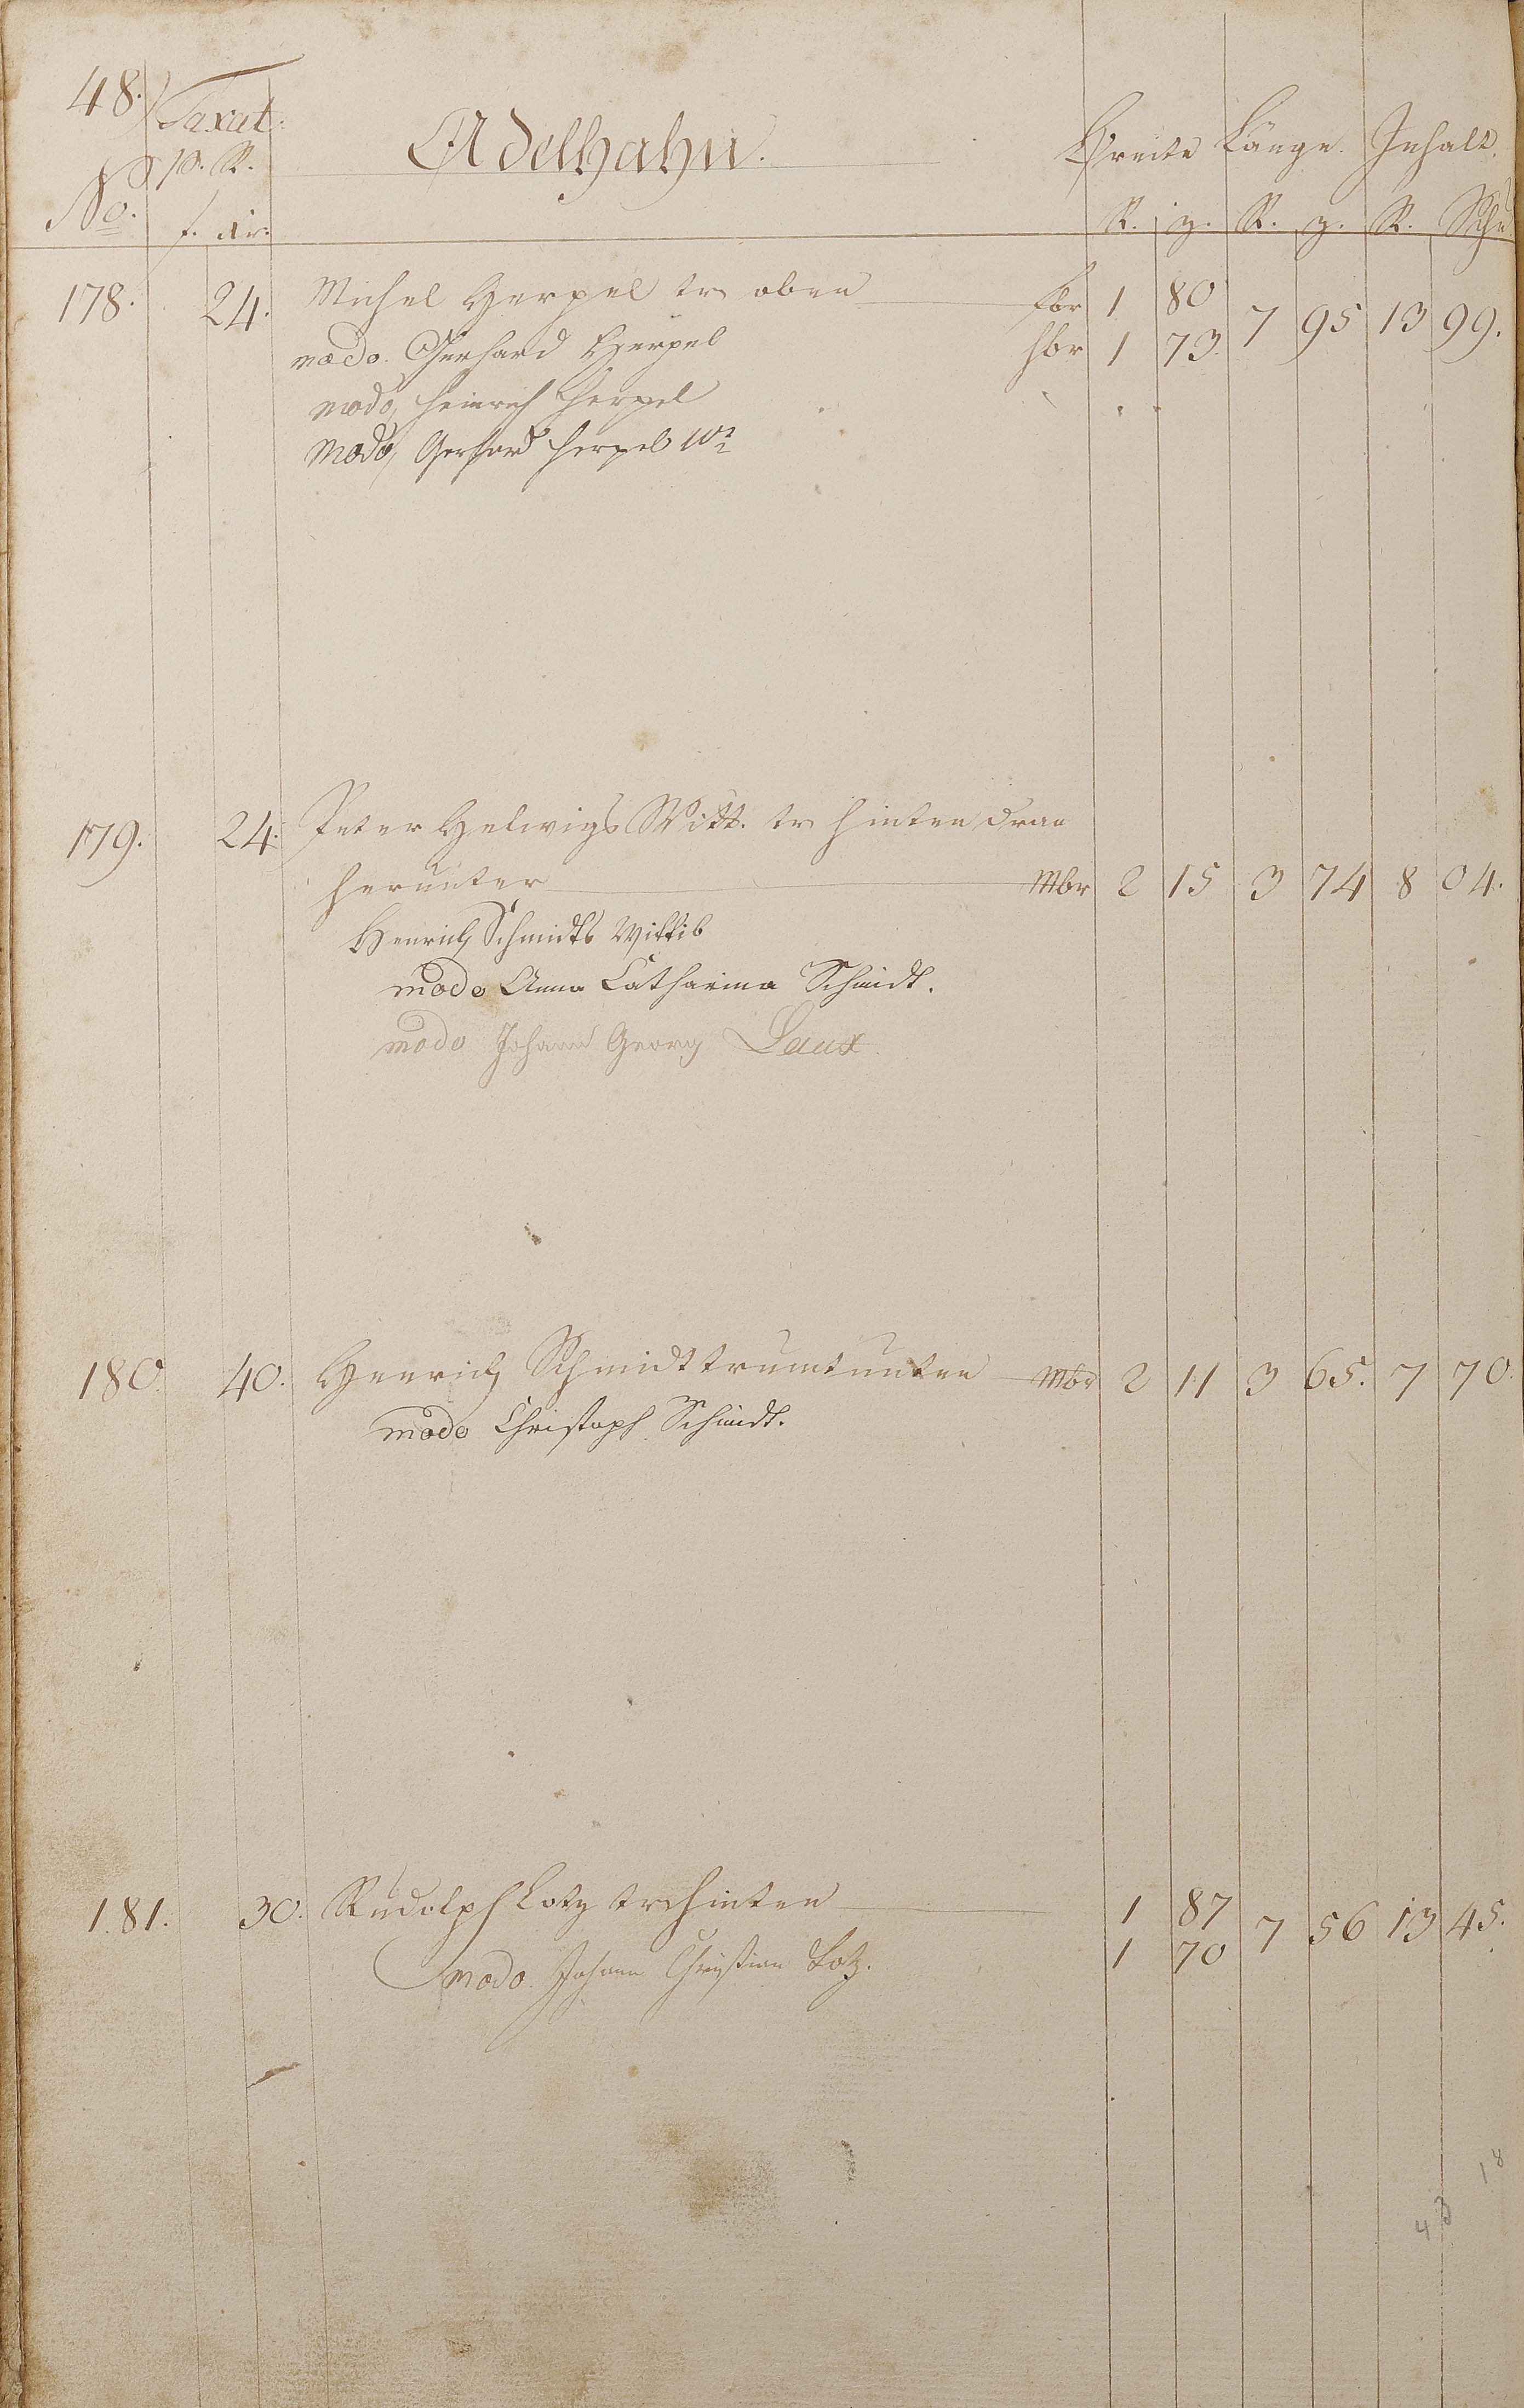 48.) Taxat: Adelhahn. Breite Länge. Inhalt.
No. p. R. R. g. R. g. R. Schu
f. xr.
178. 24. Michel Herpel tr oben fbr 1 80 7 95 13 99.
modo. Gerhard Herpel hbr 1 73.
modo, Heinrich Herpel
modo, Gerhard Herpel
179. 24. Peter Helwigs Witt. tr hinten dran
herunter Mbr 2 15 3 74 8 04.
Henrich Schmidts Wittib
modo Anna Catharina Schmidt.
modo Johann Georg Laux.
180. 40. Henrich Schmidt trumt unten Mbr 2 11 3 65. 7 70.
modo Christoph Schmidt.
181. 30. Rudolph Lotz tr hinten 1 87 7 56 13 45.
modo. Johann Christian Lotz. 1 70
18
43